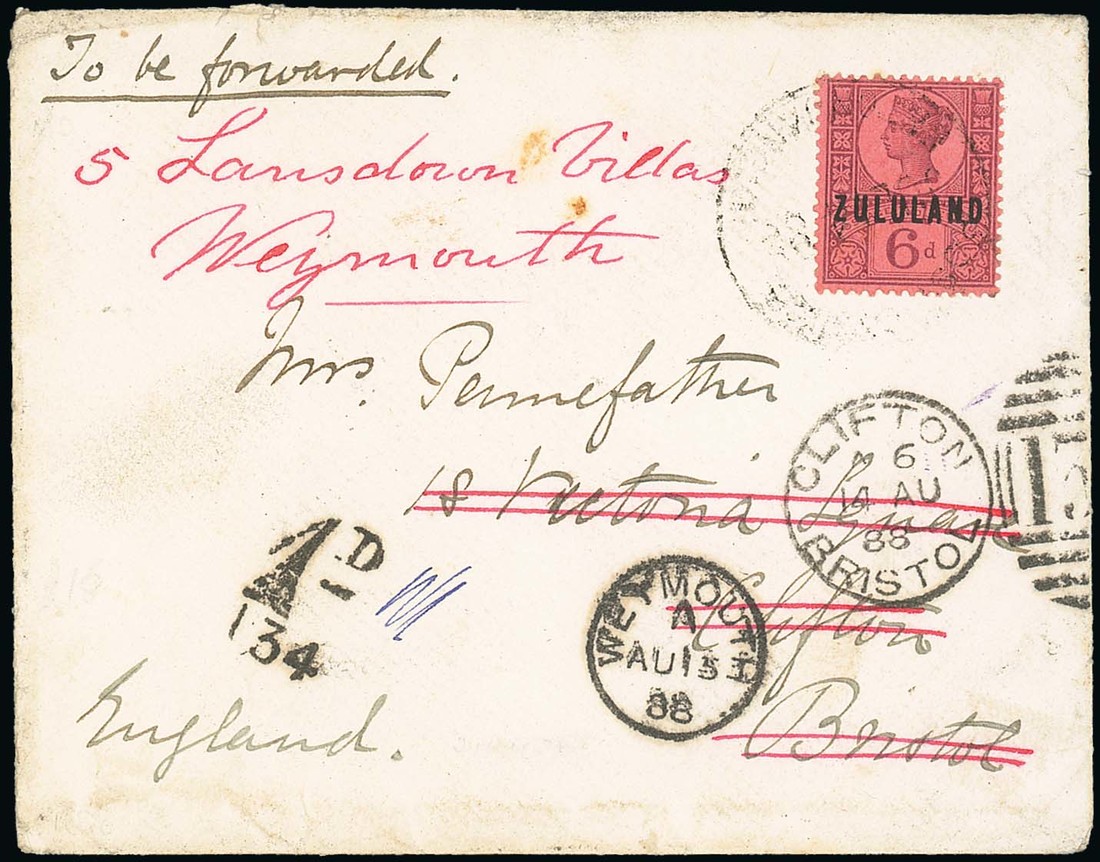 To be forwarded.
5 Lansdown Villas
Weymouth
ZULULAND
6d
Mrs. Pennefather
18 Victoria Square
Clifton
Bristol
England.
CLIFTON
A 6
14 AU
88
BRISTOL
1D
134
WEYMOUTH
A
AU 15
88